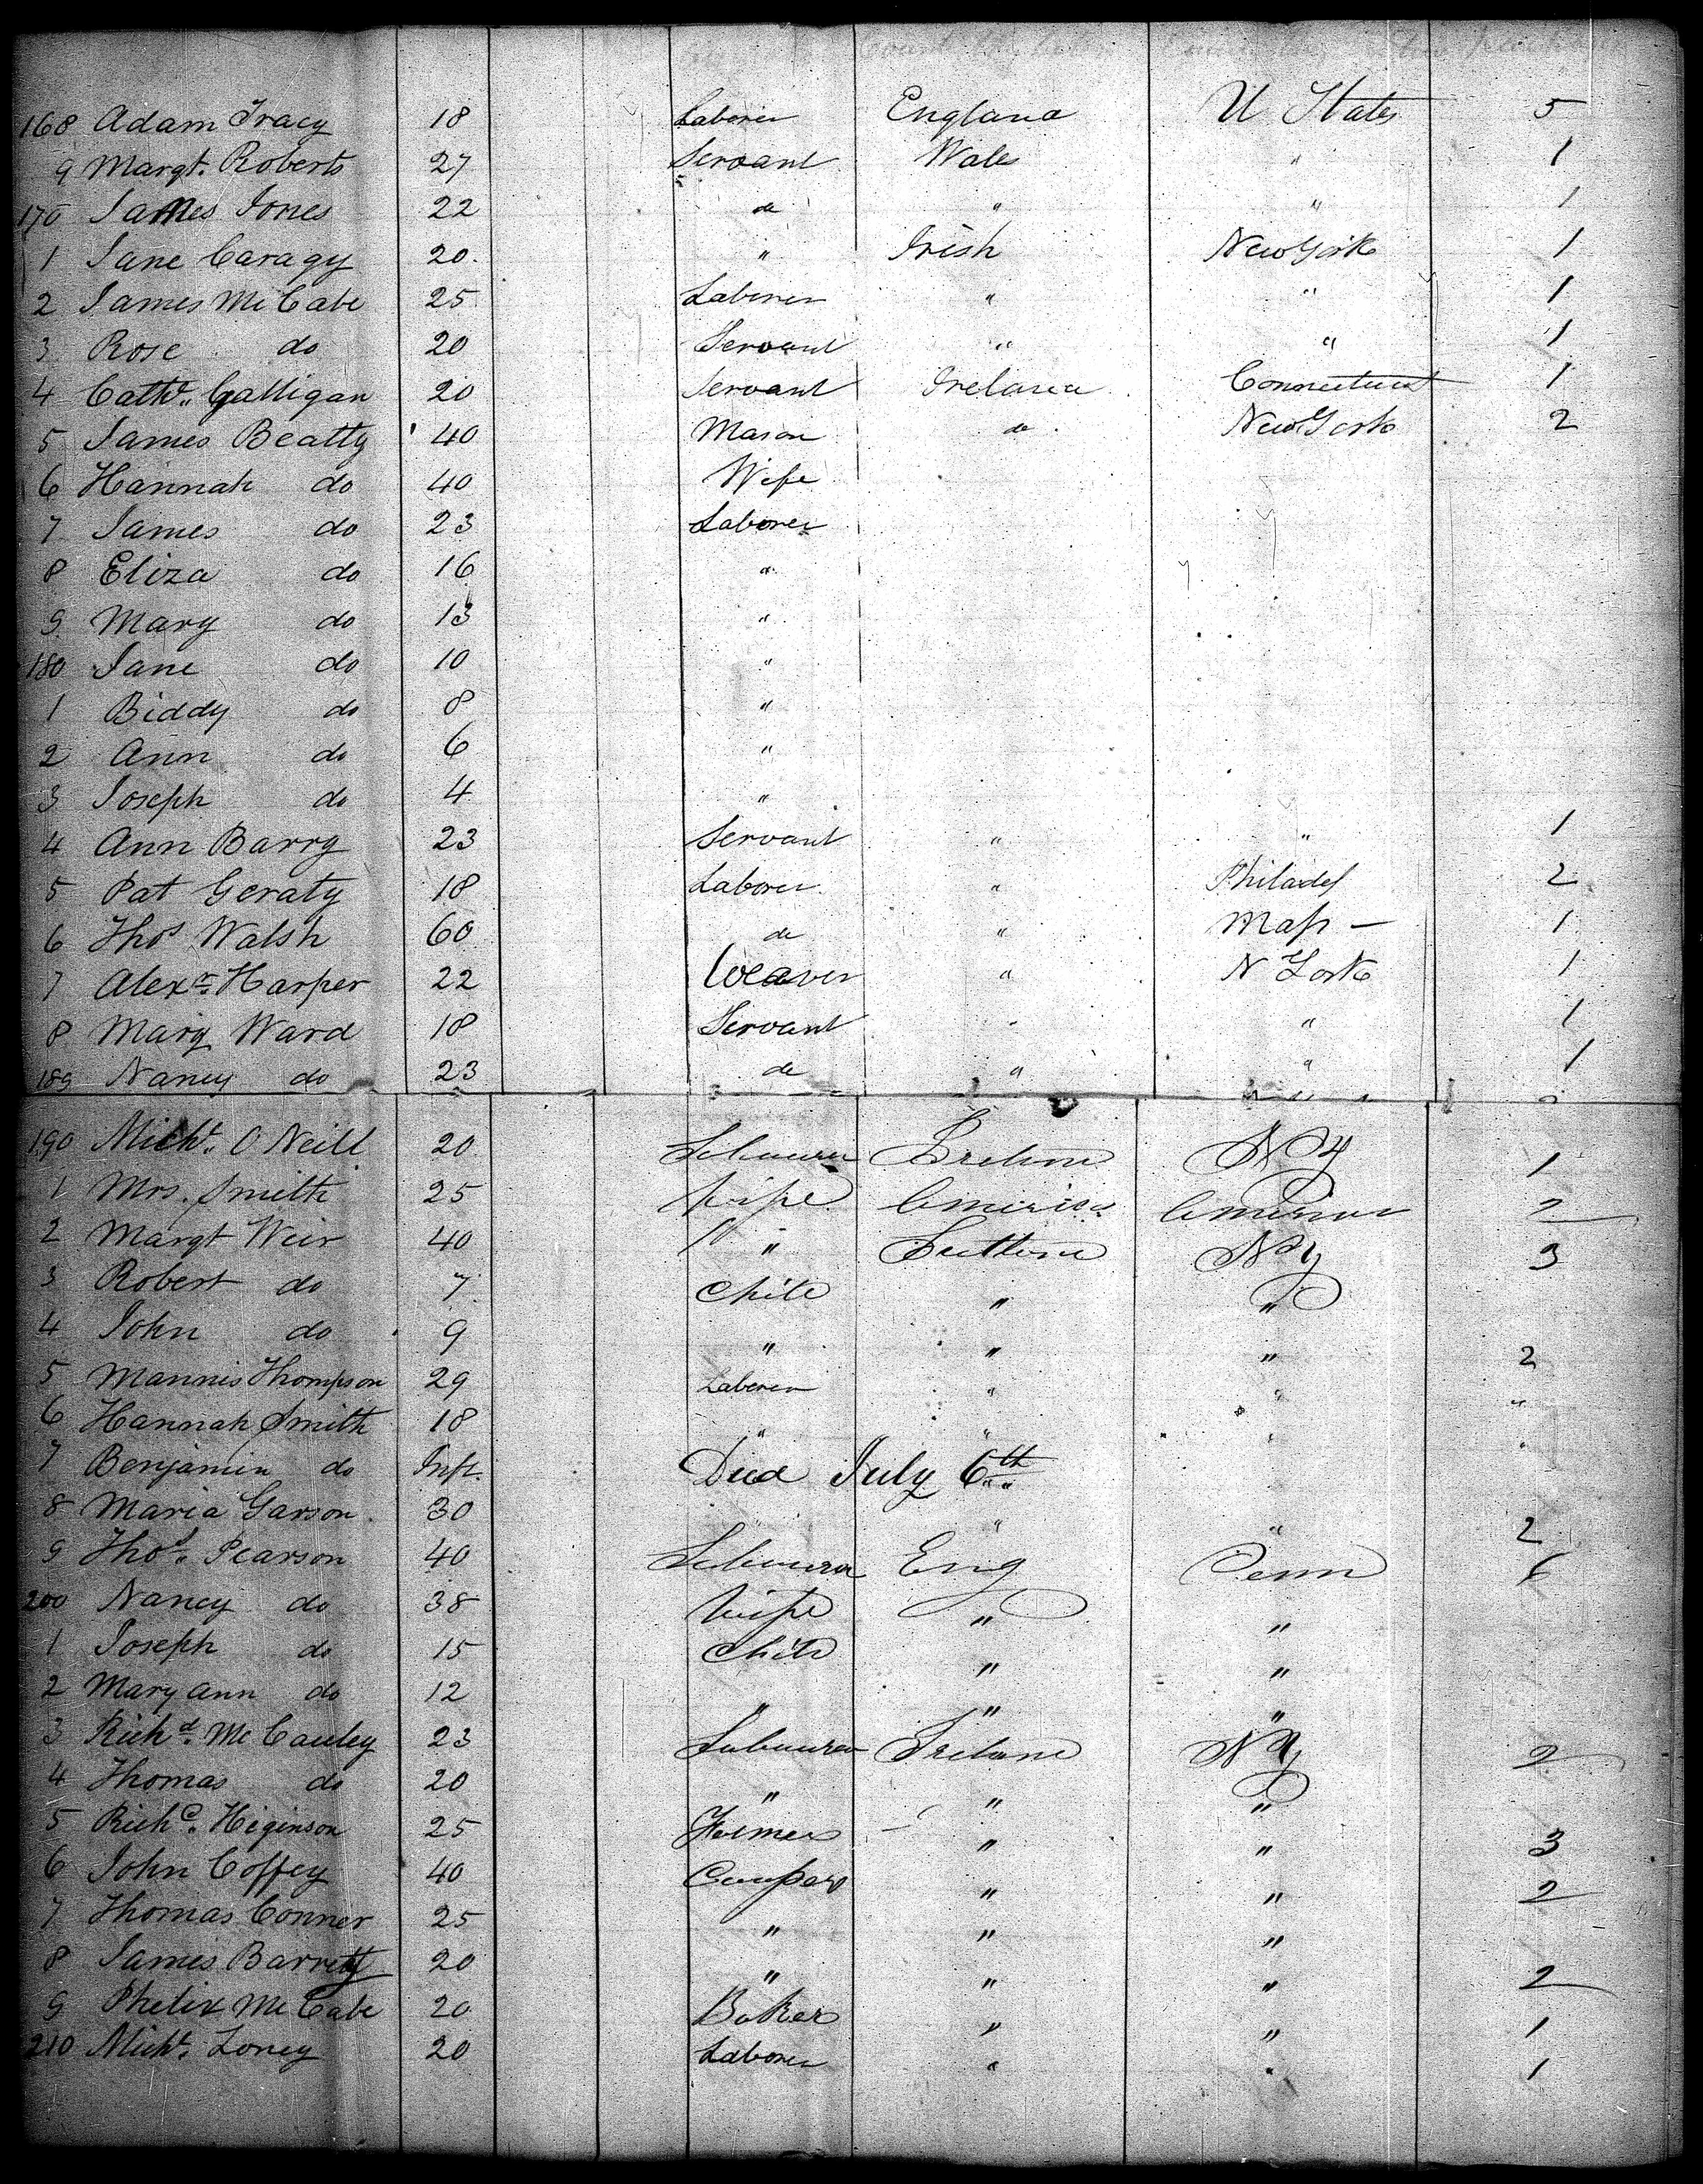 168 Adam Tracy 18 Laborer England U States 5
9 Margt. Roberts 27 Servant Wales " 1
170 James Jones 22 do " " 1
1 Jane Caragy 20 " Irish New York 1
2 James McCabe 25 Laborer " " 1
3 Rose do 20 Servant " " 1
4 Cathe. Galligan 20 Servant Ireland Connecticut 1
5 James Beatty 40 Mason do New York 2
6 Hannah do 40 Wife
7 James do 23 Laborer
8 Eliza do 16 "
9 Mary do 13 "
180 Jane do 10 "
1 Biddy do 8 "
2 Ann do 6 "
3 Joseph do 4 "
4 Ann Barry 23 Servant " " 1
5 Pat Geraty 18 Laborer " Philadel 2
6 Thos Walsh 60 do " Mass — 1
7 Alexr. Harper 22 Weaver " N York 1
8 Mary Ward 18 Servant " " 1
189 Nancy do 23 do " " 1
190 Michl. O Neill 20 Labourer Ireland NY 1
1 Mrs. Smith 25 Wife America America 2
2 Margt Weir 40 " NY 3
3 Robert do 7 Child " "
4 John do 9 " " " 2
5 Mannis Thompson 29 Laborer " " "
6 Hannah Smith 18 " " " "
7 Benjamin do Inft. Died July 6th
8 Maria Garson 30 " " 2
9 Thos. Pearson 40 Labourer Eng Penn
200 Nancy do 38 Wife " "
1 Joseph do 15 Child " "
2 Mary Ann do 12 " " "
3 Richd. McCauley 23 Labourer Ireland NY 2
4 Thomas do 20 " " "
5 Richd. Higinson 25 Farmer " " 3
6 John Coffey 40 " " 2
7 Thomas Conner 25 " " "
8 James Barrett 20 " " " 2
9 Phelix McCabe 20 Baker " " 1
210 Michl. Loney 20 Laborer " " 1